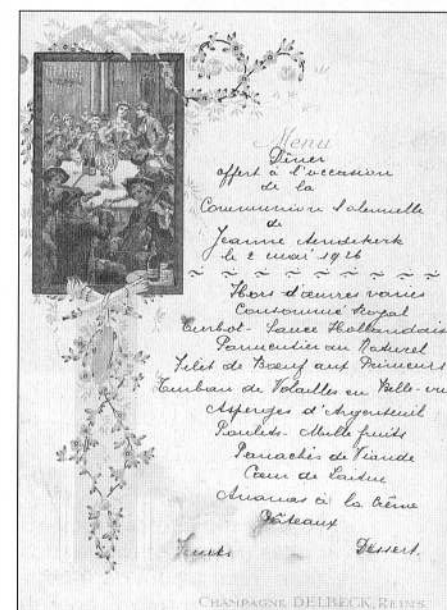 Menu
Dîner
offert à l'occasion
de la
Communion Solennelle
de
Jeanne
le 2 mai 1926
Hors d'œuvres variés
Consommé Royal
Turbot - Sauce Hollandais
Parmentier au Naturel
Filet de Bœuf aux Primeurs
Timbale de Volailles en Belle-vu
Asperges d'Argenteuil
Poulets - Mille fruits
Panachés de Viande
Cœur de Laitue
Ananas à la Crème
Gâteaux
Fruits Dessert.
CHAMPAGNE DELBECK, REIMS